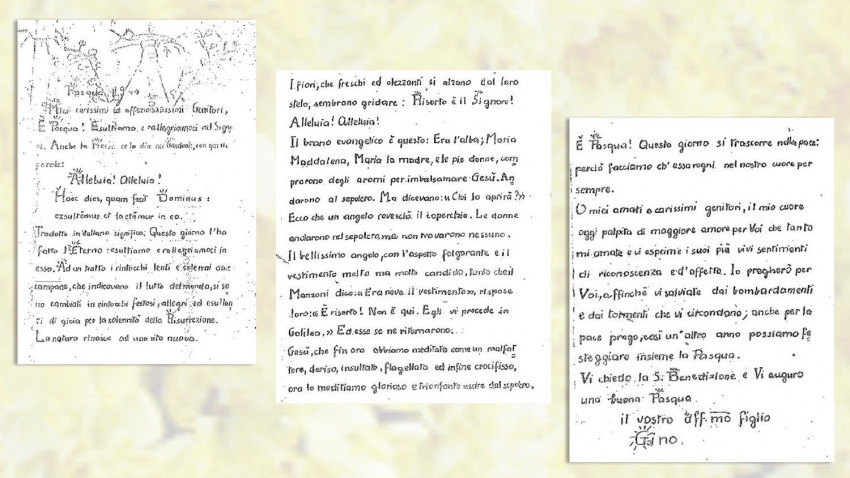 Pasqua 19
Miei carissimi ed affezionatissimi Genitori,
È Pasqua! Esultiamo, e rallegriamoci nel Signo
re. Anche la Messa ce lo dice nel Graduale, con queste
parole:
Alleluia! Alleluia!
Haec dies, quam fecit Dominus:
exsultemus et laetemur in ea.
Tradotto in italiano significa: Questo giorno l'ha
fatto l'Eterno: esultiamo e rallegriamoci in
esso. Ad un tratto i rintocchi lenti e solenni delle
campane, che indicavano il lutto del mondo, si so
no cambiati in rintocchi festosi, allegri ed esultan
ti di gioia per la solennità della Risurrezione.
La natura rinasce ad una vita nuova.
I fiori, che freschi ed olezzanti si alzano dal loro
stelo, sembrano gridare: Risorto è il Signore!
Alleluia! Alleluia!
Il brano evangelico è questo: Era l'alba; Maria
Maddalena, Maria la madre, e le pie donne, com
prarono degli aromi per imbalsamare Gesù. An
darono al sepolcro. Ma dicevano: «Chi lo aprirà?»
Ecco che un angelo rovesciò il coperchio. Le donne
andarono nel sepolcro ma non trovarono nessuno.
Il bellissimo angelo, con l'aspetto folgorante e il
vestimento molto ma molto candido, tanto che il
Manzoni dice: «Era neve il vestimento», rispose
loro: «È risorto! Non è qui. Egli vi precede in
Galilea.» Ed esse se ne ritornarono.
Gesù, che fin ora abbiamo meditato come un malfat
tore, deriso, insultato, flagellato ed infine crocifisso,
ora lo meditiamo glorioso e trionfante uscire dal sepolcro.
È Pasqua! Questo giorno si trascorre nella pace:
perciò facciamo ch'essa regni nel nostro cuore per
sempre.
O miei amati e carissimi genitori, il mio cuore
oggi palpita di maggiore amore per Voi che tanto
mi amate e vi esprime i suoi più vivi sentimenti
di riconoscenza ed affetto. Io pregherò per
Voi, affinché vi salviate dai bombardamenti
e dai tormenti che vi circondano; anche per la
pace prego, così un'altro anno possiamo fe
steggiare insieme la Pasqua.
Vi chiedo la S. Benedizione e Vi auguro
una buona Pasqua.
il vostro aff.mo figlio
Gino.